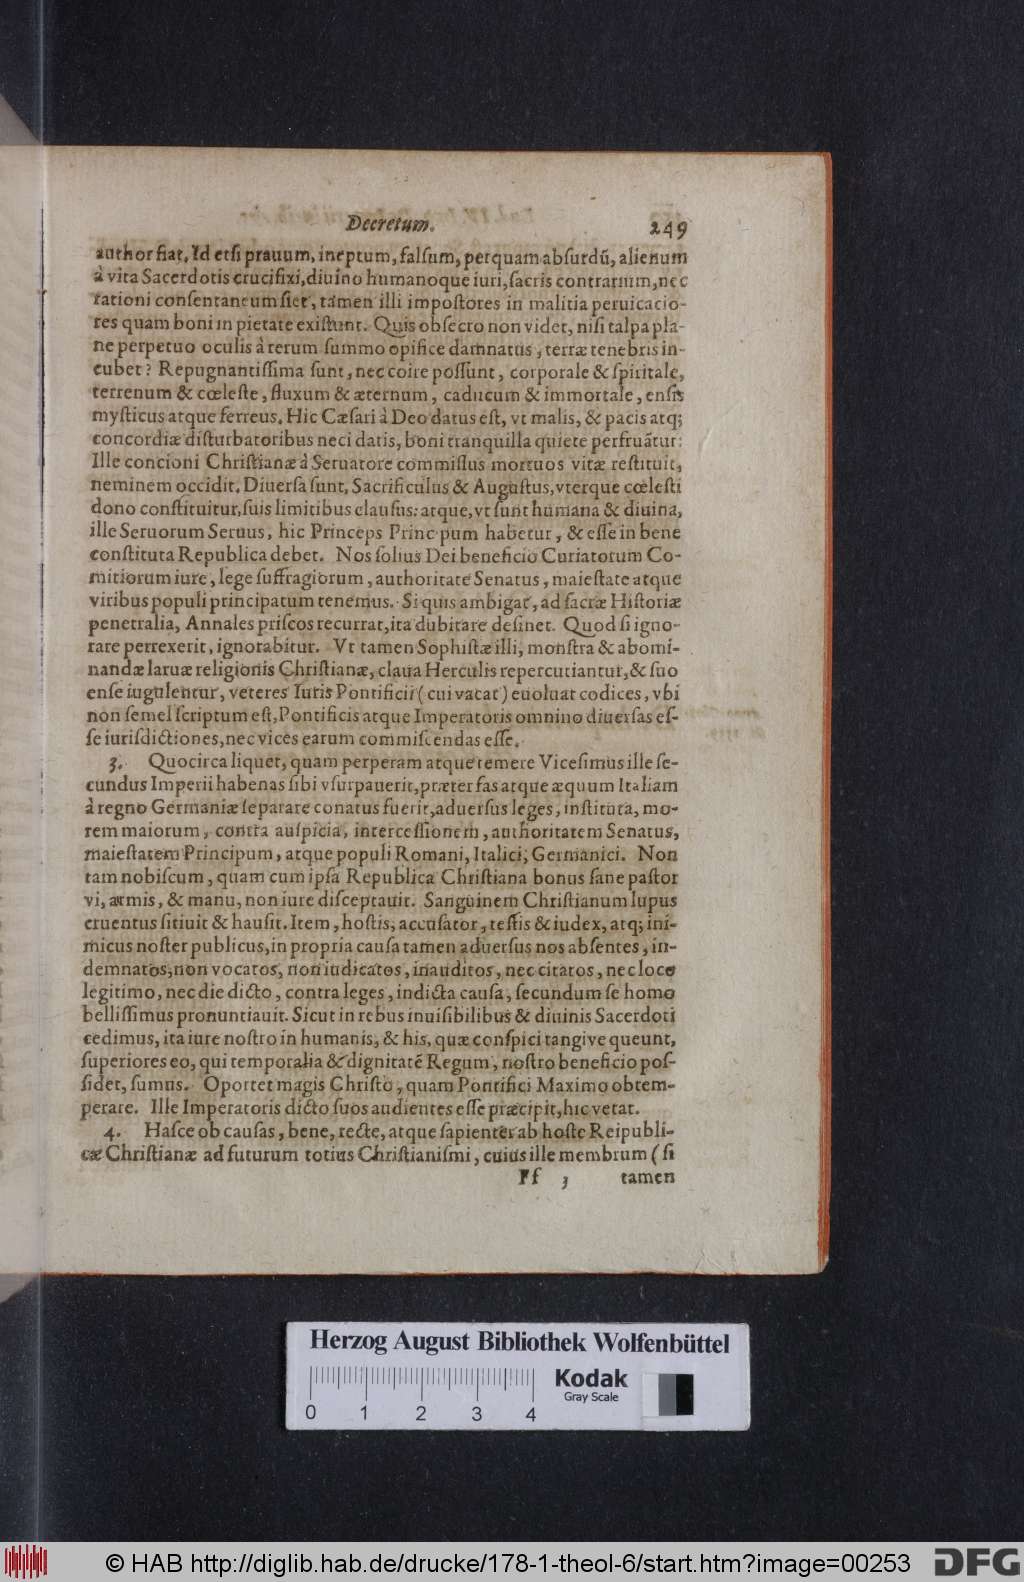 Decretum. 249
author fiat. Id etſi prauum, ineptum, falſum, perquam abſurdū, alienum
à vita Sacerdotis crucifixi, diuino humanoque iuri, ſacris contrarium, nec
rationi conſentaneum ſiet, tamen illi impoſtores in malitia peruicacio-
res quam boni in pietate exiſtunt. Quis obſecro non videt, niſi talpa pla-
ne perpetuo oculis à rerum ſummo opifice damnatus, terræ tenebris in-
cubet? Repugnantiſſima ſunt, nec coire poſſunt, corporale & ſpiritale,
terrenum & cœleſte, fluxum & æternum, caducum & immortale, enſis
myſticus atque ferreus. Hic Cæſari à Deo datus eſt, vt malis, & pacis atq;
concordiæ diſturbatoribus neci datis, boni tranquilla quiete perfruātur:
Ille concioni Chriſtianæ à Seruatore commiſſus mortuos vitæ reſtituit,
neminem occidit. Diuerſa ſunt, Sacrificulus & Auguſtus, vterque cœleſti
dono conſtituitur, ſuis limitibus clauſus: atque, vt ſunt humana & diuina,
ille Seruorum Seruus, hic Princeps Principum habetur, & eſſe in bene
conſtituta Republica debet. Nos ſolius Dei beneficio Curiatorum Co-
mitiorum iure, lege ſuffragiorum, authoritate Senatus, maieſtate atque
viribus populi principatum tenemus. Si quis ambigat, ad ſacræ Hiſtoriæ
penetralia, Annales priſcos recurrat, ita dubitare deſinet. Quod ſi igno-
rare perrexerit, ignorabitur. Vt tamen Sophiſtæ illi, monſtra & abomi-
nandæ laruæ religionis Chriſtianæ, claua Herculis repercutiantur, & ſuo
enſe iugulentur, veteres Iuris Pontificii (cui vacat) euoluat codices, vbi
non ſemel ſcriptum eſt, Pontificis atque Imperatoris omnino diuerſas eſ-
ſe iuriſdictiones, nec vices earum commiſcendas eſſe.
3. Quocirca liquet, quam perperam atque temere Viceſimus ille ſe-
cundus Imperii habenas ſibi vſurpauerit, præter fas atque æquum Italiam
à regno Germaniæ ſeparare conatus fuerit, aduerſus leges, inſtituta, mo-
rem maiorum, contra auſpicia, interceſſionem, authoritatem Senatus,
maieſtatem Principum, atque populi Romani, Italici, Germanici. Non
tam nobiſcum, quam cum ipſa Republica Chriſtiana bonus ſane paſtor
vi, armis, & manu, non iure diſceptauit. Sanguinem Chriſtianum lupus
cruentus ſitiuit & hauſit. Item, hoſtis, accuſator, teſtis & iudex, atq; ini-
micus noſter publicus, in propria cauſa tamen aduerſus nos abſentes, in-
demnatos, non vocatos, non iudicatos, inauditos, nec citatos, nec loco
legitimo, nec die dicto, contra leges, indicta cauſa, ſecundum ſe homo
belliſſimus pronuntiauit. Sicut in rebus inuiſibilibus & diuinis Sacerdoti
cedimus, ita iure noſtro in humanis, & his, quæ conſpici tangive queunt,
ſuperiores eo, qui temporalia & dignitatē Regum, noſtro beneficio poſ-
ſidet, ſumus. Oportet magis Chriſto, quam Pontifici Maximo obtem-
perare. Ille Imperatoris dicto ſuos audientes eſſe præcipit, hic vetat.
4. Haſce ob cauſas, bene, recte, atque ſapienter ab hoſte Reipubli-
cæ Chriſtianæ ad futurum totius Chriſtianiſmi, cuius ille membrum (ſi
Ff 3 tamen
Herzog August Bibliothek Wolfenbüttel
Kodak
Gray Scale
0 1 2 3 4
© HAB http://diglib.hab.de/drucke/178-1-theol-6/start.htm?image=00253 DFG